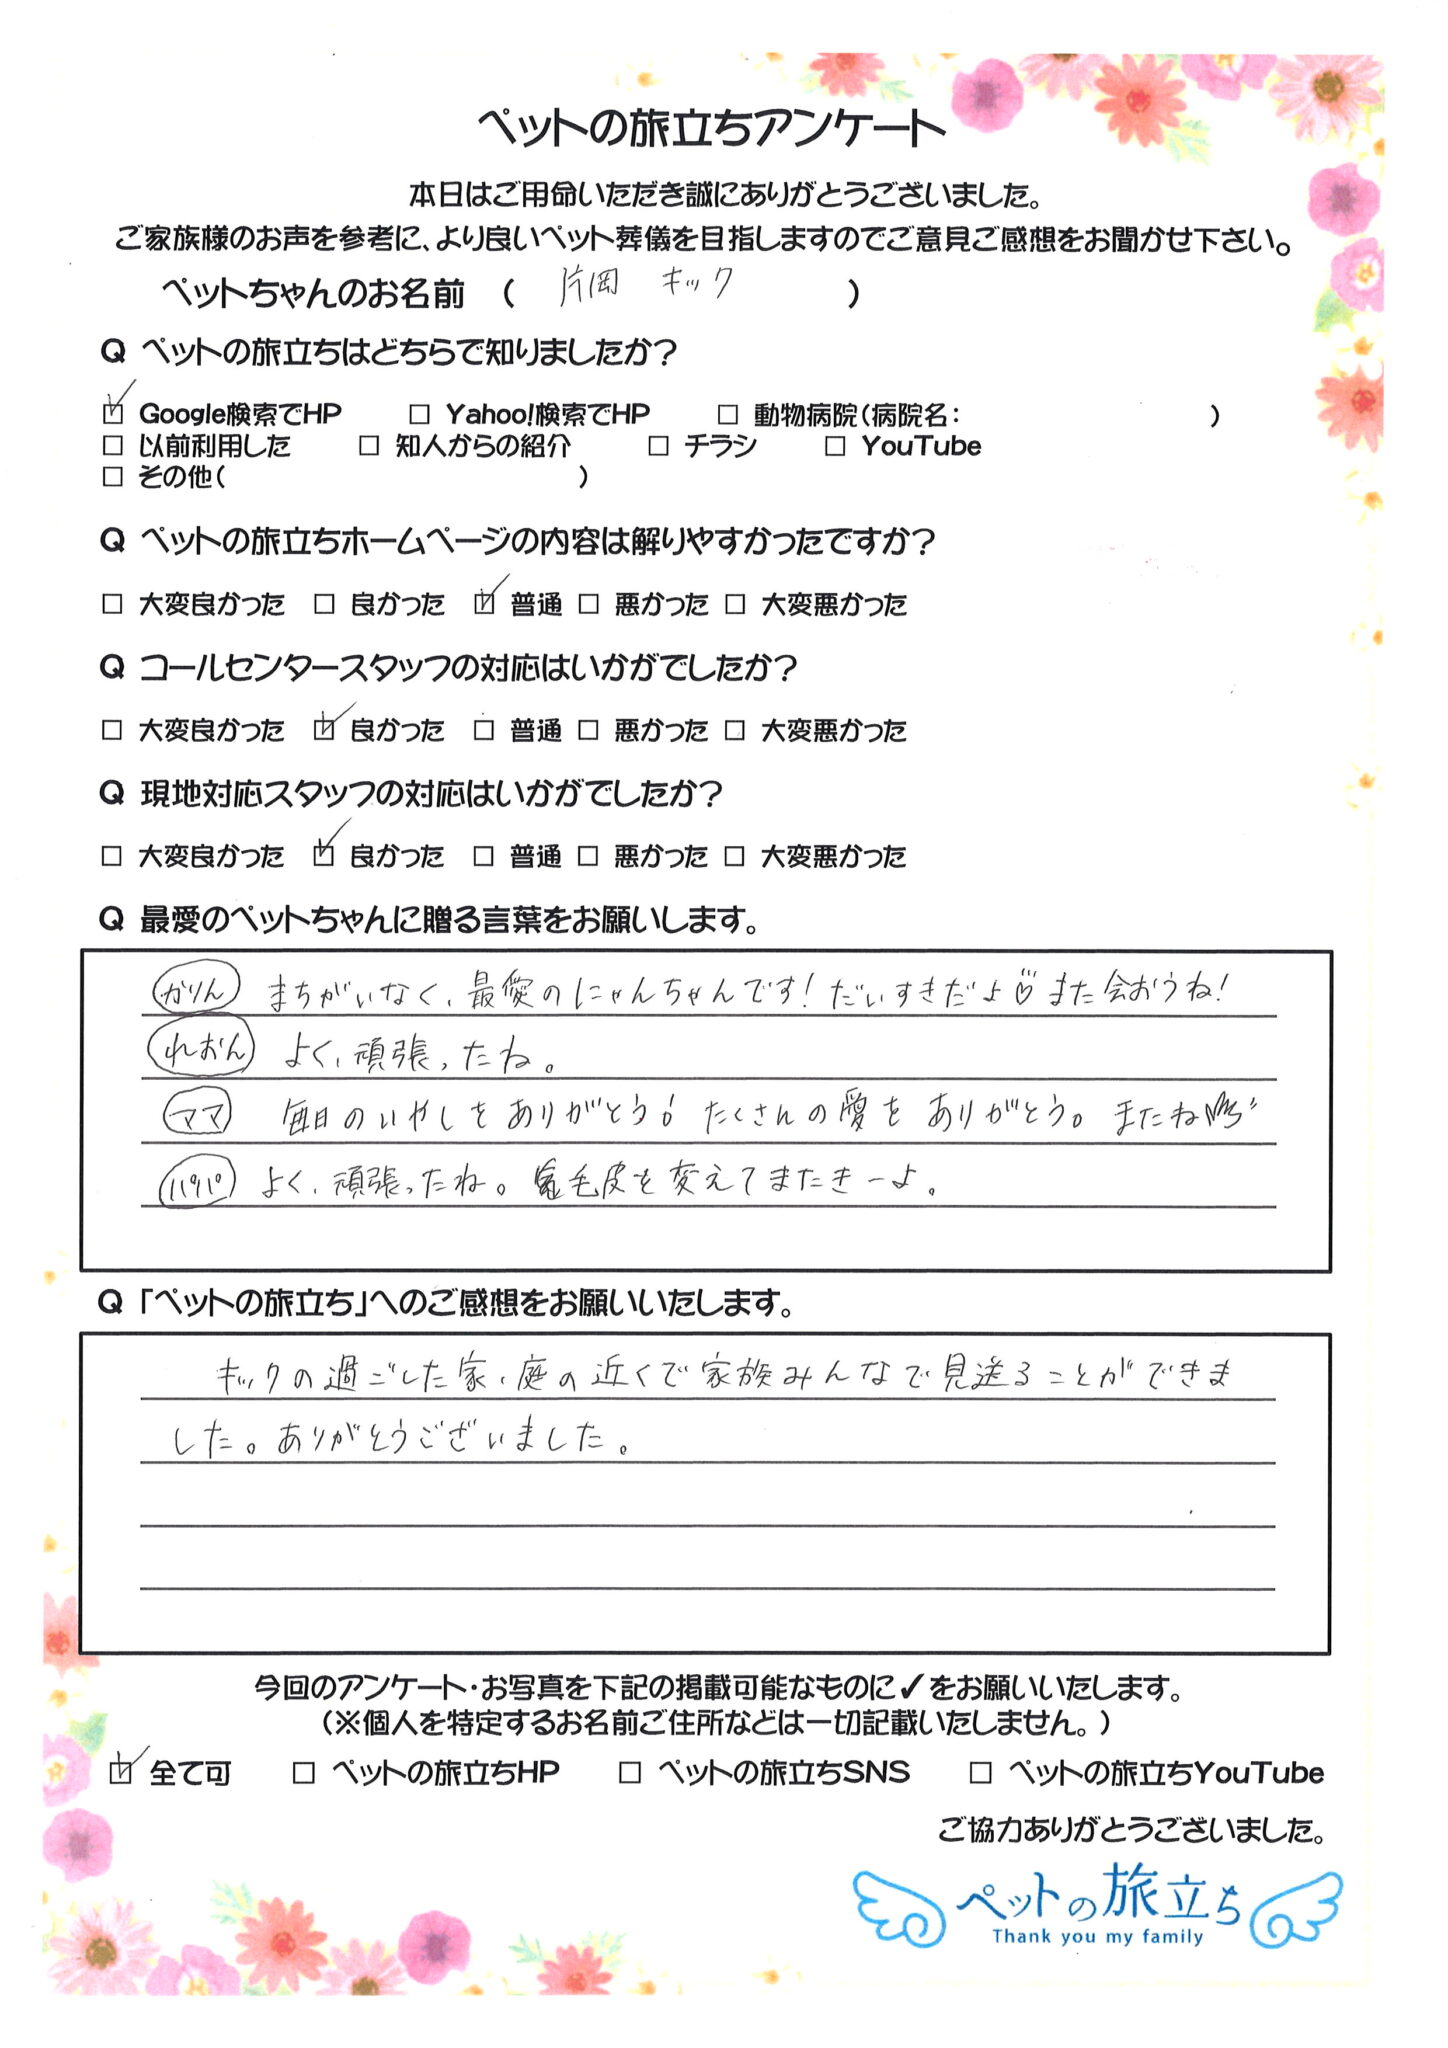 ペットの旅立ちアンケート
本日はご用命いただき誠にありがとうございました。
ご家族様のお声を参考に、より良いペット葬儀を目指しますのでご意見ご感想をお聞かせ下さい。
ペットちゃんのお名前 ( 片岡 キック )
Q ペットの旅立ちはどちらで知りましたか?
☑ Google検索でHP □ Yahoo!検索でHP □ 動物病院(病院名: )
□ 以前利用した □ 知人からの紹介 □ チラシ □ YouTube
□ その他( )
Q ペットの旅立ちホームページの内容は解りやすかったですか?
□ 大変良かった □ 良かった ☑ 普通 □ 悪かった □ 大変悪かった
Q コールセンタースタッフの対応はいかがでしたか?
□ 大変良かった ☑ 良かった □ 普通 □ 悪かった □ 大変悪かった
Q 現地対応スタッフの対応はいかがでしたか?
□ 大変良かった ☑ 良かった □ 普通 □ 悪かった □ 大変悪かった
Q 最愛のペットちゃんに贈る言葉をお願いします。
かりん まちがいなく、最愛のにゃんちゃんです!だいすきだよ♡また会おうね!
れおん よく、頑張ったね。
ママ 毎日のいやしをありがとう! たくさんの愛をありがとう。またね
パパ よく、頑張ったね。毛皮を変えてまたきーよ。
Q 「ペットの旅立ち」へのご感想をお願いいたします。
キックの過ごした家、庭の近くで家族みんなで見送ることができま
した。ありがとうございました。
今回のアンケート・お写真を下記の掲載可能なものに✓をお願いいたします。
(※個人を特定するお名前ご住所などは一切記載いたしません。)
☑ 全て可 □ ペットの旅立ちHP □ ペットの旅立ちSNS □ ペットの旅立ちYouTube
ご協力ありがとうございました。
ペットの旅立ち
Thank you my family